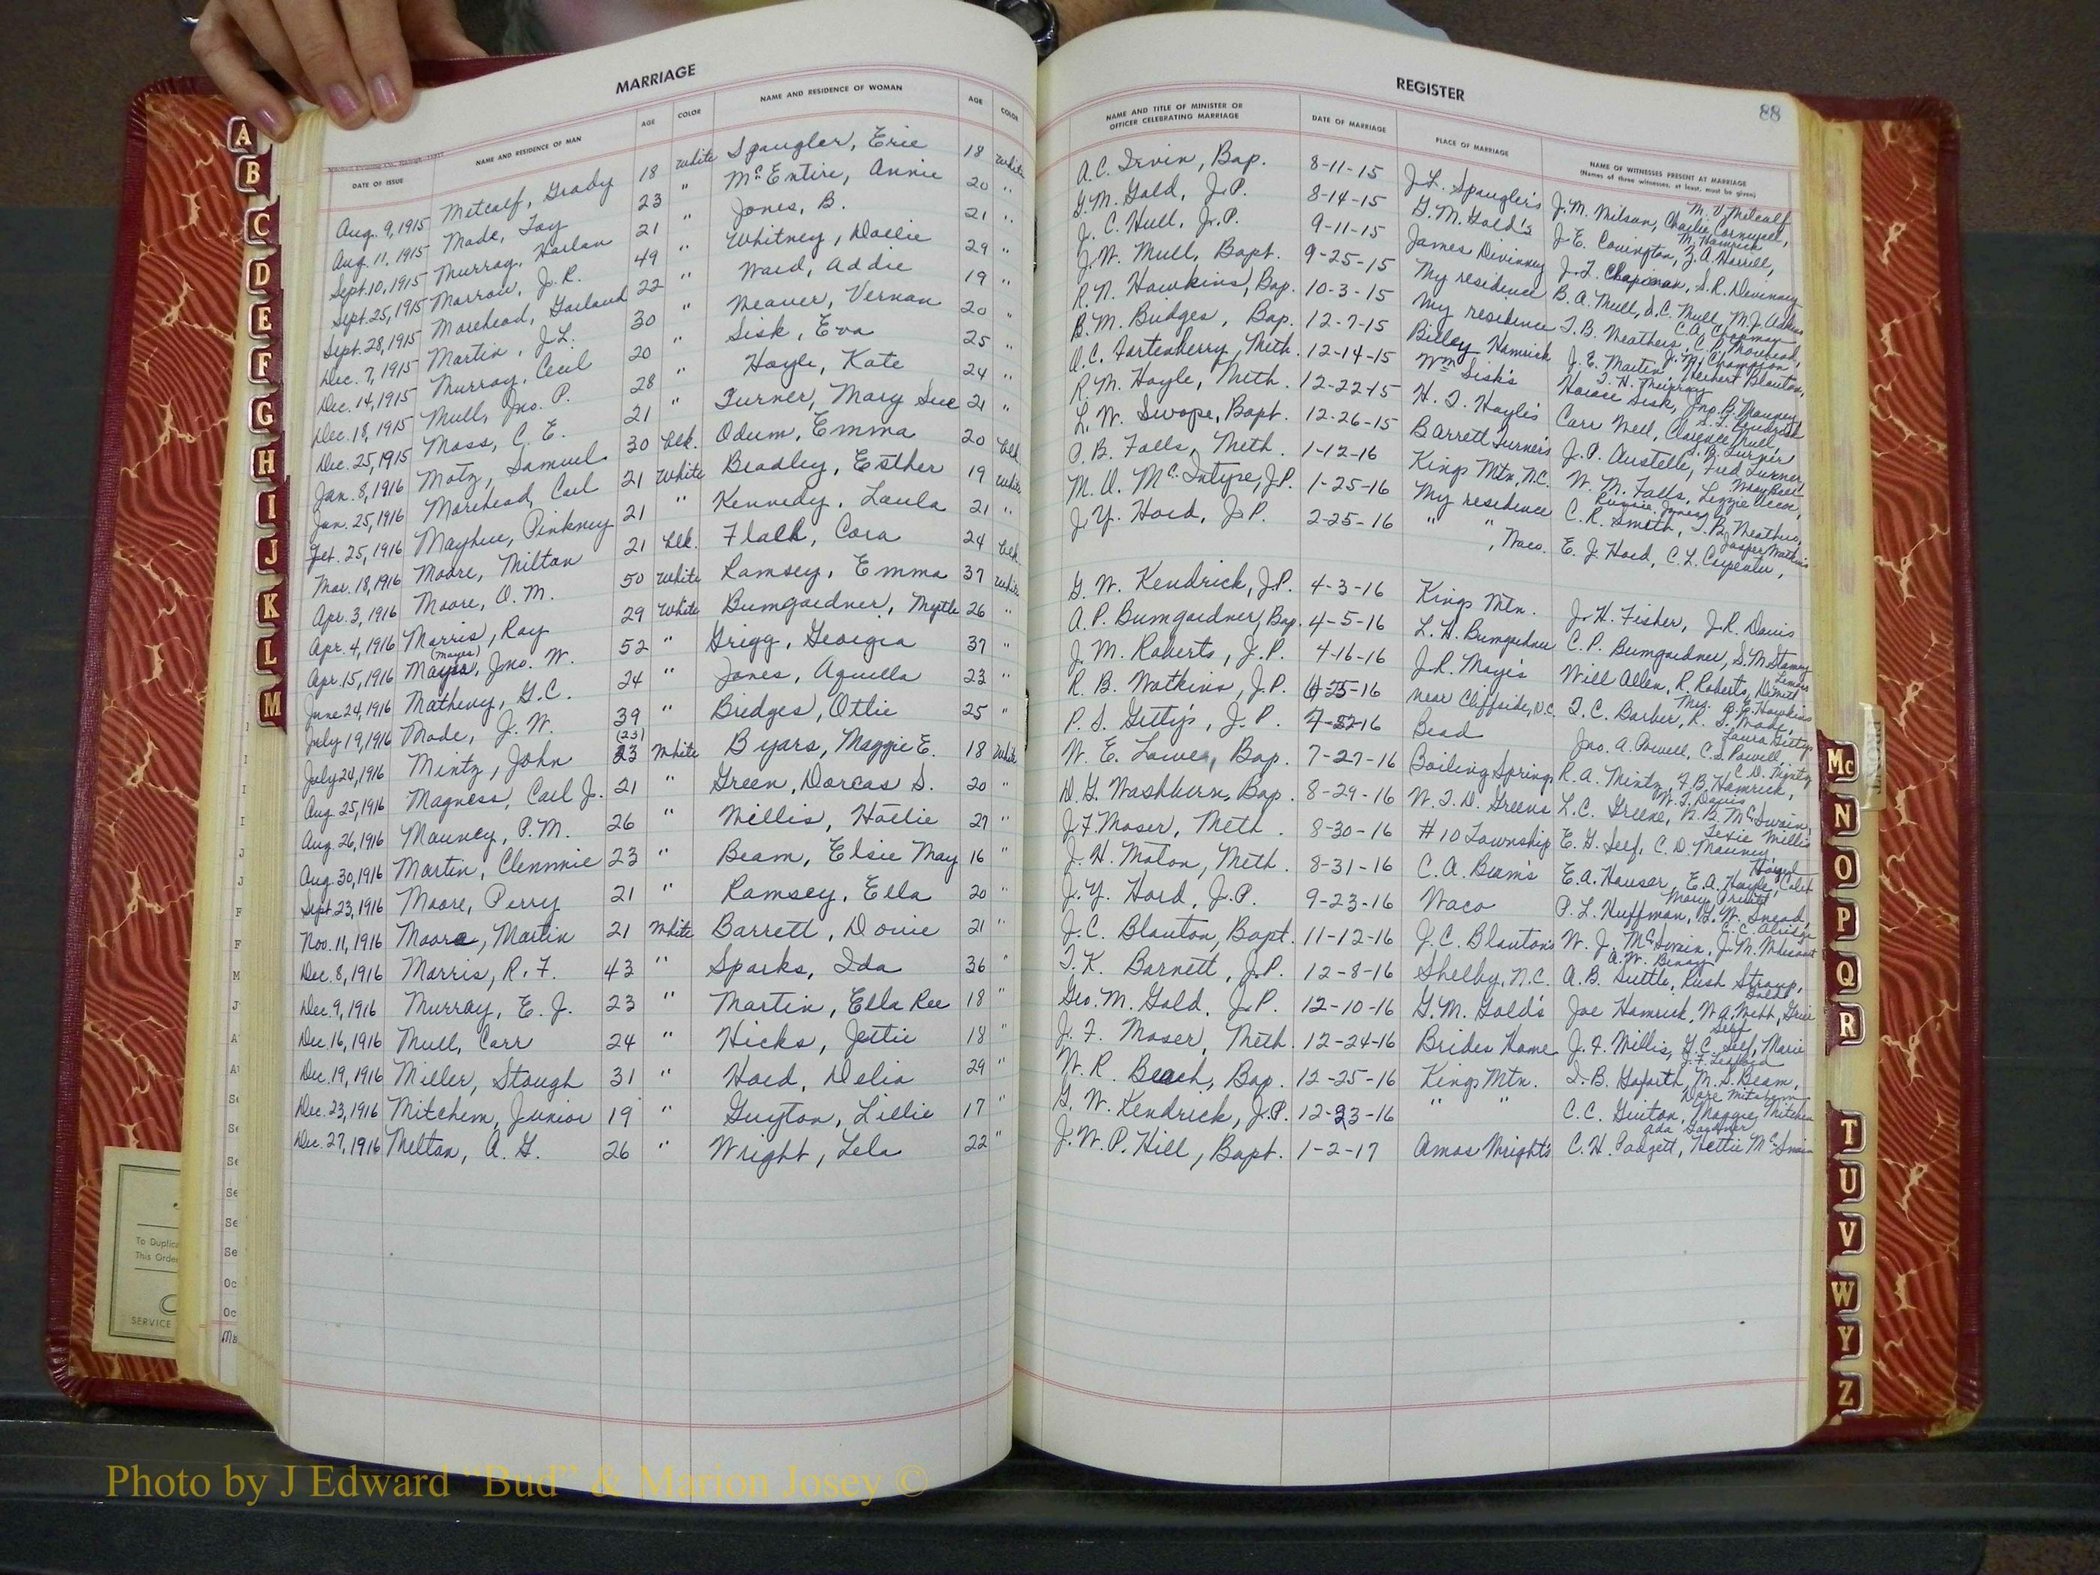 MARRIAGE
DATE OF ISSUE NAME AND RESIDENCE OF MAN AGE COLOR NAME AND RESIDENCE OF WOMAN AGE COLOR
Aug. 9, 1915 Metcalf, Grady 18 White Spangler, Erie 18 White
Aug. 11, 1915 Mode, Fay 23 " McEntire, Annie 20 "
Sept. 10, 1915 Murray, Harlan 21 " Jones, B. 21 "
Sept. 25, 1915 Morrow, J. R. 49 " Whitney, Dollie 29 "
Sept. 28, 1915 Morehead, Garland 22 " Ward, Addie 19 "
Dec. 7, 1915 Martin, J.L. 30 " Weaver, Vernan 20 "
Dec. 14, 1915 Murray, Cecil 20 " Sisk, Eva 25 "
Dec. 18, 1915 Mull, Jno. P. 28 " Hoyle, Kate 24 "
Dec. 25, 1915 Moss, C. E. 21 " Turner, Mary Sue 21 "
Jan. 8, 1916 Motz, Samuel 30 blk. Odum, Emma 20 blk
Jan. 25, 1916 Morehead, Carl 21 White Bradley, Esther 19 White
Feb. 25, 1916 Mayhue, Pinkney 21 " Kennedy, Laula 21 "
Mar. 18, 1916 Moore, Milton 21 blk. Flack, Cora 24 blk
Apr. 3, 1916 Moore, O. M. 50 White Ramsey, Emma 37 White
Apr. 4, 1916 Morris, Ray 29 White Bumgardner, Myrtle 26 "
Apr. 15, 1916 Mayes, Jno. W. 52 " Grigg, Georgia 37 "
June 24, 1916 Matheny, G.C. 24 " Jones, Aquilla 23 "
July 19, 1916 Mode, J. W. 39 " Bridges, Ottie 25 "
July 24, 1916 Mintz, John (23) 23 White Byars, Maggie E. 18 White
Aug. 25, 1916 Magness, Carl J. 21 " Green, Dorcas S. 20 "
Aug. 26, 1916 Mauney, P.M. 26 " Willis, Hollie 27 "
Aug. 30, 1916 Martin, Clemmie 23 " Beam, Elsie May 16 "
Sept. 23, 1916 Moore, Perry 21 " Ramsey, Ella 20 "
Nov. 11, 1916 Moore, Martin 21 White Barrett, Dovie 21 "
Dec. 8, 1916 Morris, R. F. 43 " Sparks, Ida 36 "
Dec. 9, 1916 Murray, E. J. 23 " Martin, Ella Ree 18 "
Dec. 16, 1916 Mull, Carr 24 " Hicks, Jettie 18 "
Dec. 19, 1916 Miller, Stough 31 " Hord, Delia 29 "
Dec. 23, 1916 Mitchem, Junior 19 " Guyton, Lillie 17 "
Dec. 27, 1916 Melton, A. G. 26 " Wright, Lela 22 "
REGISTER
88
NAME AND TITLE OF MINISTER OR OFFICER CELEBRATING MARRIAGE DATE OF MARRIAGE PLACE OF MARRIAGE NAME OF WITNESSES PRESENT AT MARRIAGE
(Names of three witnesses, at least, must be given)
A.C. Irvin, Bap. 8-11-15 J.L. Spangler's J.M. Wilson, Charlie Cornwell, M. V. Metcalf
G.M. Gold, J.P. 8-14-15 G.M. Gold's J.E. Covington, Z.A. Harrill, M. Hamrick
J. C. Hull, J.P. 9-11-15 James Devinney J.T. Chapman, S.R. Devinney
J.W. Mull, Bapt. 9-25-15 My residence B.A. Mull, D.C. Mull, M.J. Adkins
R.N. Hawkins, Bap. 10-3-15 My residence T.B. Weathers, C.P. Morehead,
B.M. Bridges, Bap. 12-7-15 Billey Hamrick J.E. Martin, Herbert Blanton,
O.C. Fortenberry, Meth. 12-14-15 Wm Sisk's Horace Sisk,
R.M. Hoyle, Meth. 12-22-15 H. T. Hoyle's Carr Well, Clarence Mull,
L.W. Swope, Bapt. 12-26-15 Barrett Turner's J.P. Austelle, Fred Turner,
P.B. Falls, Meth. 1-12-16 Kings Mtn, N.C. W. M. Falls,
M.O. McIntyre, J.P. 1-25-16 My residence C.R. Smith, T.B. Weathers,
J.Y. Hord, J.P. 2-25-16 " ", Waco. E. J. Hord, C.L. Carpenter,
G.W. Kendrick, J.P. 4-3-16 Kings Mtn. J.H. Fisher, J.R. Davis
A.P. Bumgardner, Bap. 4-5-16 L.H. Bumgardner C. P. Bumgardner, S.M. Stamey
J.M. Roberts, J.P. 4-16-16 J.R. Mayes Will Allen, R. Roberts,
R. B. Watkins, J.P. 6-25-16 near Cliffside, N.C. T.C. Barber, R. S. Wood,
P. S. Gettys, J. P. 7-22-16 Bead Jno. A. Powell, C.S. Powell, Laura Gettys
W. E. Lowe, Bap. 7-27-16 Boiling Springs R.A. Mintz, F.B. Hamrick, C.D. Mintz
D.G. Washburn, Bap. 8-29-16 W.T.D. Greene L.C. Greene, N.B. McSwain, W.T. Davis
J.F. Moser, Meth. 8-30-16 #10 Township E.G. Self, C.D. Mauney, Texie Willis
J. H. Moton, Meth. 8-31-16 C.A. Beam's E.A. Houser, E.A. Hoyle,
J.Y. Hord, J.P. 9-23-16 Waco P.L. Huffman, G.W. Snead,
J.C. Blanton, Bapt. 11-12-16 J.C. Blanton's W. J. McSwain,
T.K. Barnett, J.P. 12-8-16 Shelby, N.C. A.B. Suttle, Rush Stroup,
Geo. M. Gold, J.P. 12-10-16 G.M. Gold's Joe Hamrick, W.A. Webb,
J. F. Moser, Meth. 12-24-16 Brides Home J.F. Willis, G.C. Self, Marie Self
W.R. Beach, Bap. 12-25-16 Kings Mtn. I.B. Goforth, M.S. Beam,
G.W. Kendrick, J.P. 12-23-16 " " C.C. Guiton, Maggie Mitchem, Dove Mitchem
J.W.P. Hill, Bapt. 1-2-17 Amos Wright's C.H. Padgett, Hettie McSwain, Ada Gardner
A
B
C
D
E
F
G
H
I
J
K
L
M
Mc
N
O
P
Q
R
T
U
V
W
Y
Z
To Duplica
This Orde
SERVICE
Photo by J Edward “Bud” & Marion Josey ©